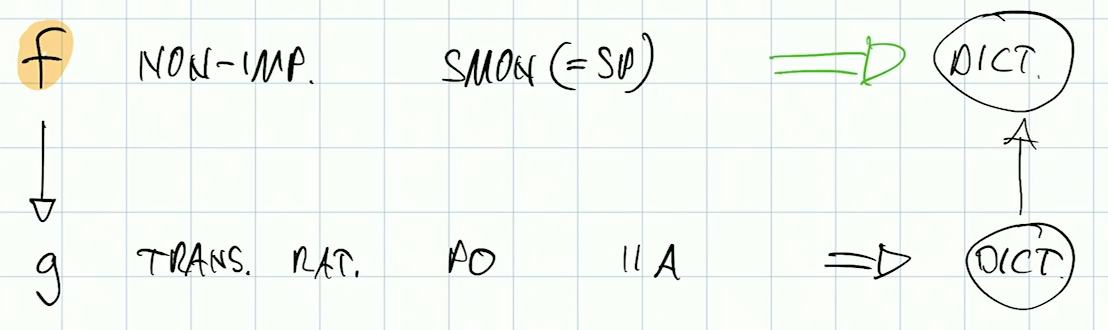 f NON-IMP. SMON (=SP) ⇒ DICT.
g TRANS. RAT. PO IIA ⇒ DICT.